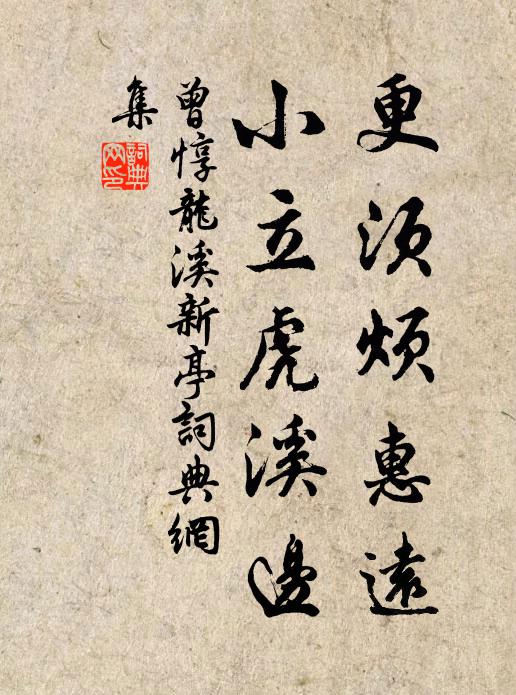 更須煩惠遠
小立虎溪邊
曾惇龍溪新亭詞典網
集
詞典網印